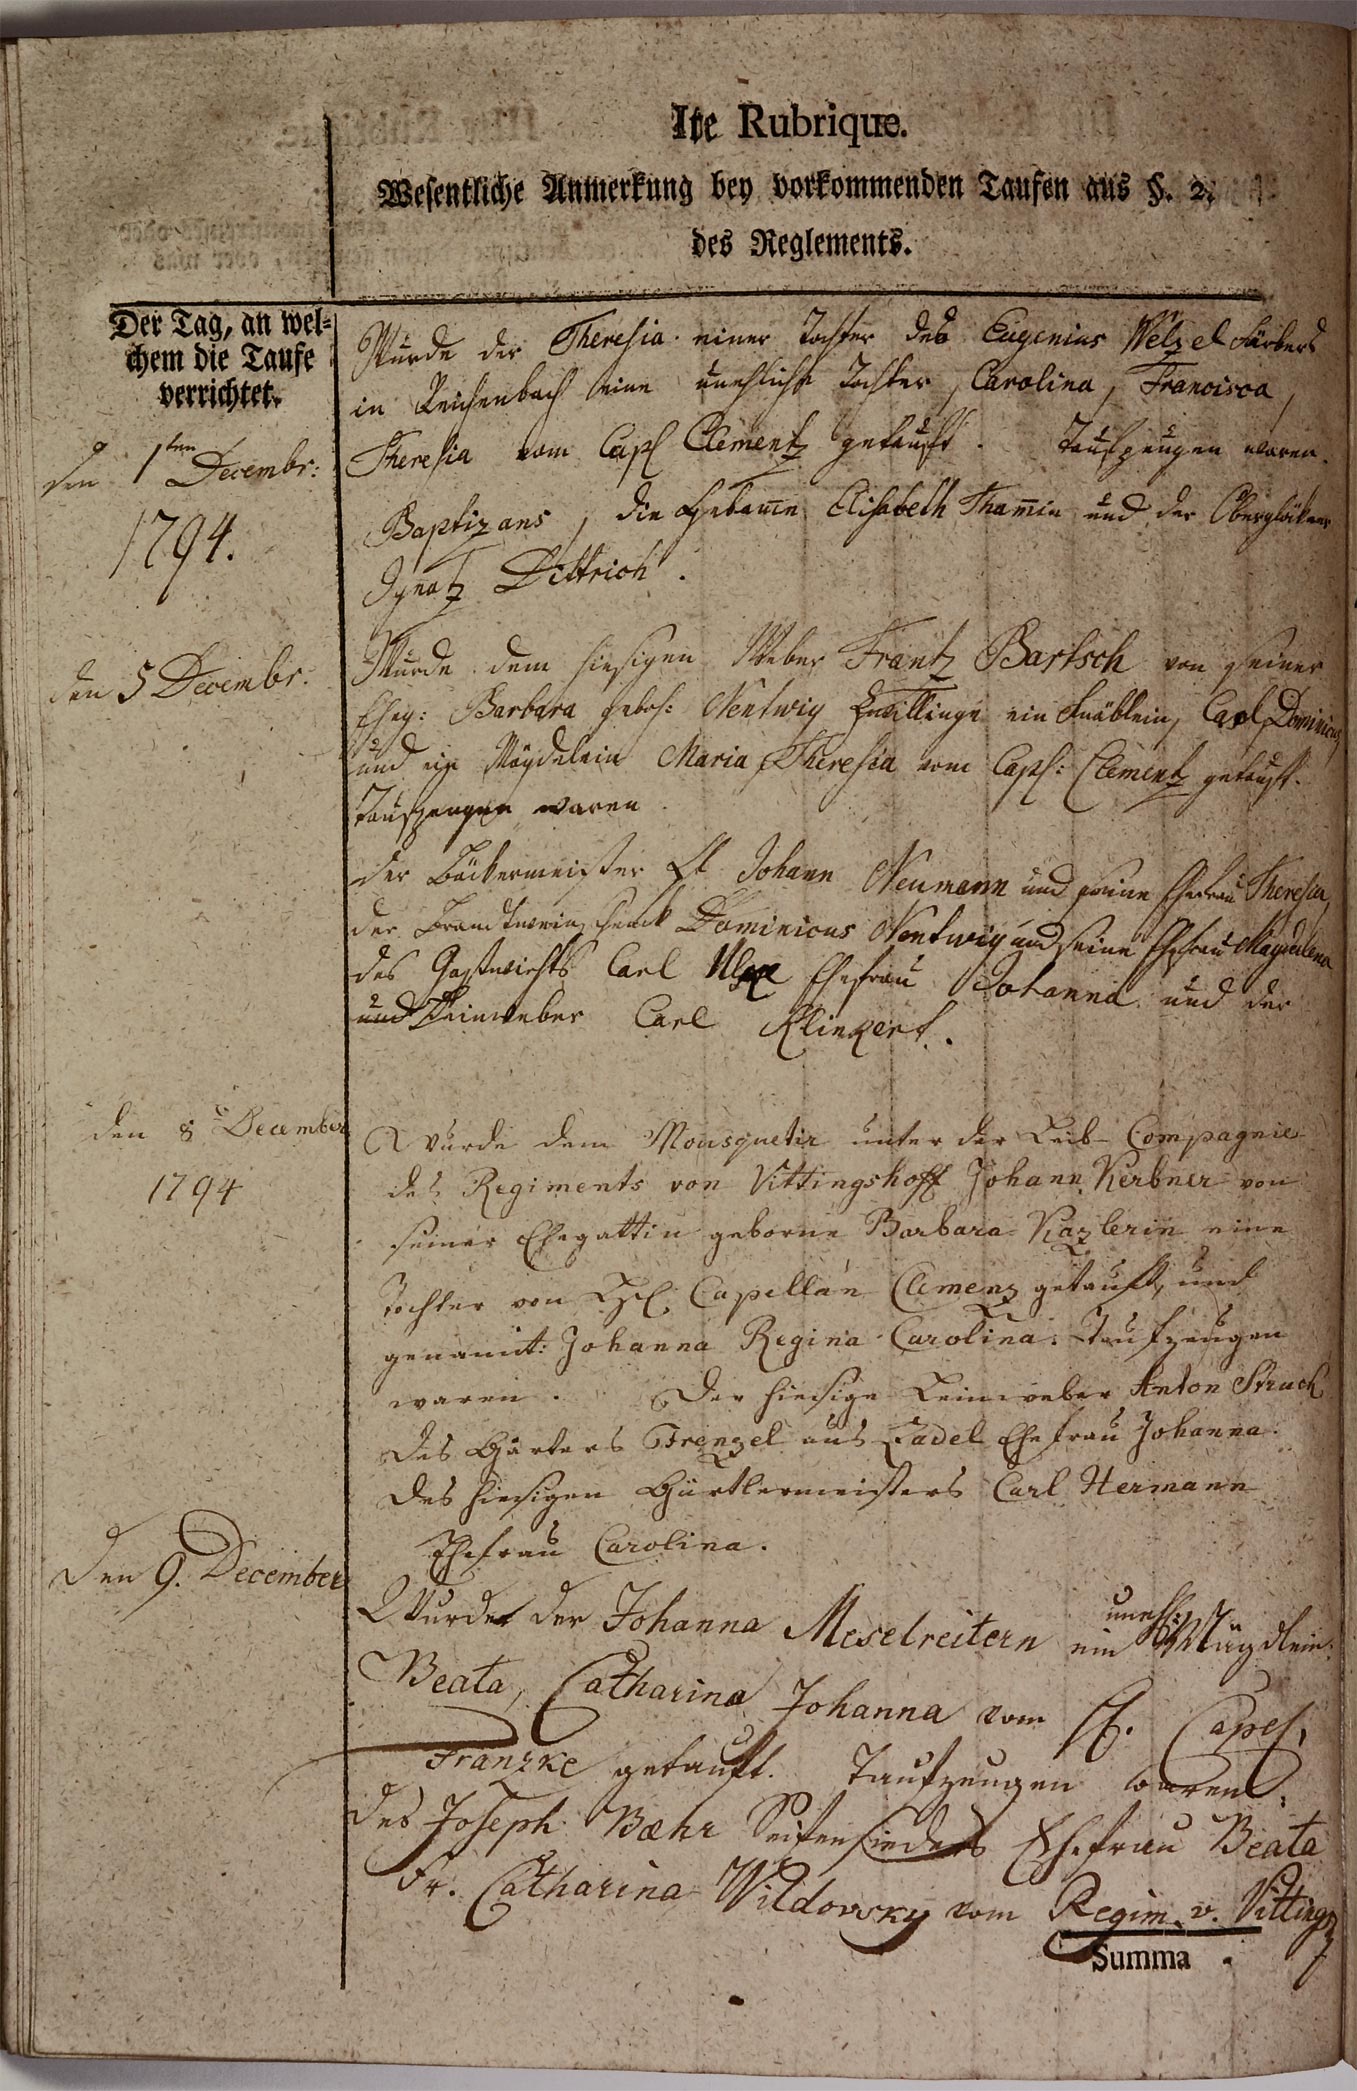 Ite Rubrique.
Wesentliche Anmerkung bey vorkommenden Taufen aus §. 2.
des Reglements.
Der Tag, an wel-
chem die Taufe
verrichtet.
den 1sten Decembr:
1794.
Wurde der Theresia einer Tochter des Eugenius Welzel Färbers
in Reichenbach eine unehliche Tochter, Carolina, Francisca,
Theresia vom Capl Clementz getauft. Taufzeugen waren.
Baptizans, die Hebame Elisabeth Thamin und der Oberglökner
Ignatz Dittrich.
den 5 Decembr.
Wurde dem hiesigen Weber Frantz Bartsch von seiner
Eheg: Barbara geboh: Nentwig Zwillinge ein Knäblein, Carl Dominicus
und ein Mägdelein Maria Theresia vom Capl: Clementz getauft.
Taufzeugen waren
der Bäckermeister H Johann Neumann und seine Ehefrau Theresia,
der Brandtwein schenck Dominicus Nentwig und seine Ehefrau Magdalena
des Gastwirths Carl Ehefrau Johanna und der
und Leinweber Carl Klinkert.
den 8 December
1794
Wurde dem Mousquetir unter der Leib-Compagnie
des Regiments von Vittingshoff Johann Kerbner von
seiner Ehegattin geborne Barbara Kazlerin eine
Tochter von Capellan Clemenz getauft, und
genannt: Johanna Regina Carolina. Taufzeugen
waren. Der hiesige Leinweber Anton Struch
des Gärters Frenzel aus Zadel Ehefrau Johanna.
des hiesigen Gürtlermeisters Carl Hermann
Ehefrau Carolina.
Den 9. December
Wurde der Johanna Meselreitern ein unehl: Mägdlein:
Beata, Catharina Johanna vom H. Capel,
Franzke getauft. Taufzeugen waren:
des Joseph Bæhr Seifensieders Ehefrau Beata
Fr. Catharina Wildowsky vom Regim. v. Vitting
Summa